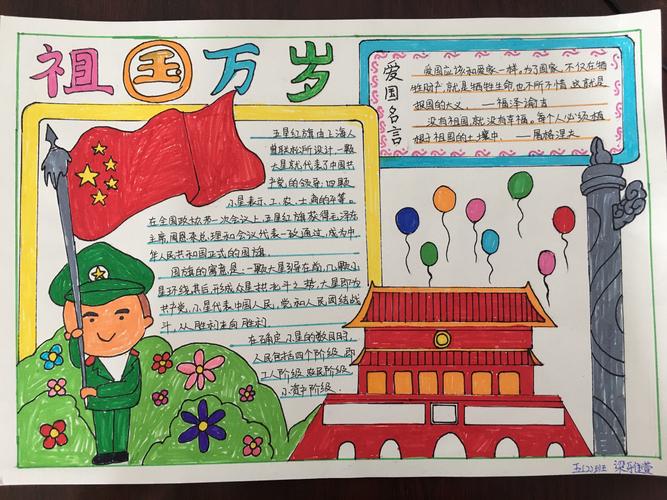 祖国万岁
爱国名言
爱国应该和爱家一样，为了国家，不仅在牺
牲财产，就是牺牲生命，也不所不惜，这就是
报国的大义。——福泽谕吉
没有祖国，就没有幸福，每个人必须植
根于祖国的土壤中。——屠格涅夫
五星红旗由上海人
曾联松所设计一颗
大星就代表了中国共
产党，的领导，四颗
小星表示，工，农，士商的平等。
在全国政协第一次会议上，五星红旗获得毛泽东
主席，周恩来总理和会议代表一致通过，成为中
华人民共和国正式的国旗.
国旗的寓意是：一颗大星引导在前，几颗小
星环绕其后，形成众星拱北斗之势，大星即为
共产党，小星代表中国人民，党和人民团结战
斗，从胜利走向胜利.
在确定小星的数目时，
人民包括四个阶级，即
工人阶级，农民阶级，
小资产阶级.
五(2)班 梁雅萱